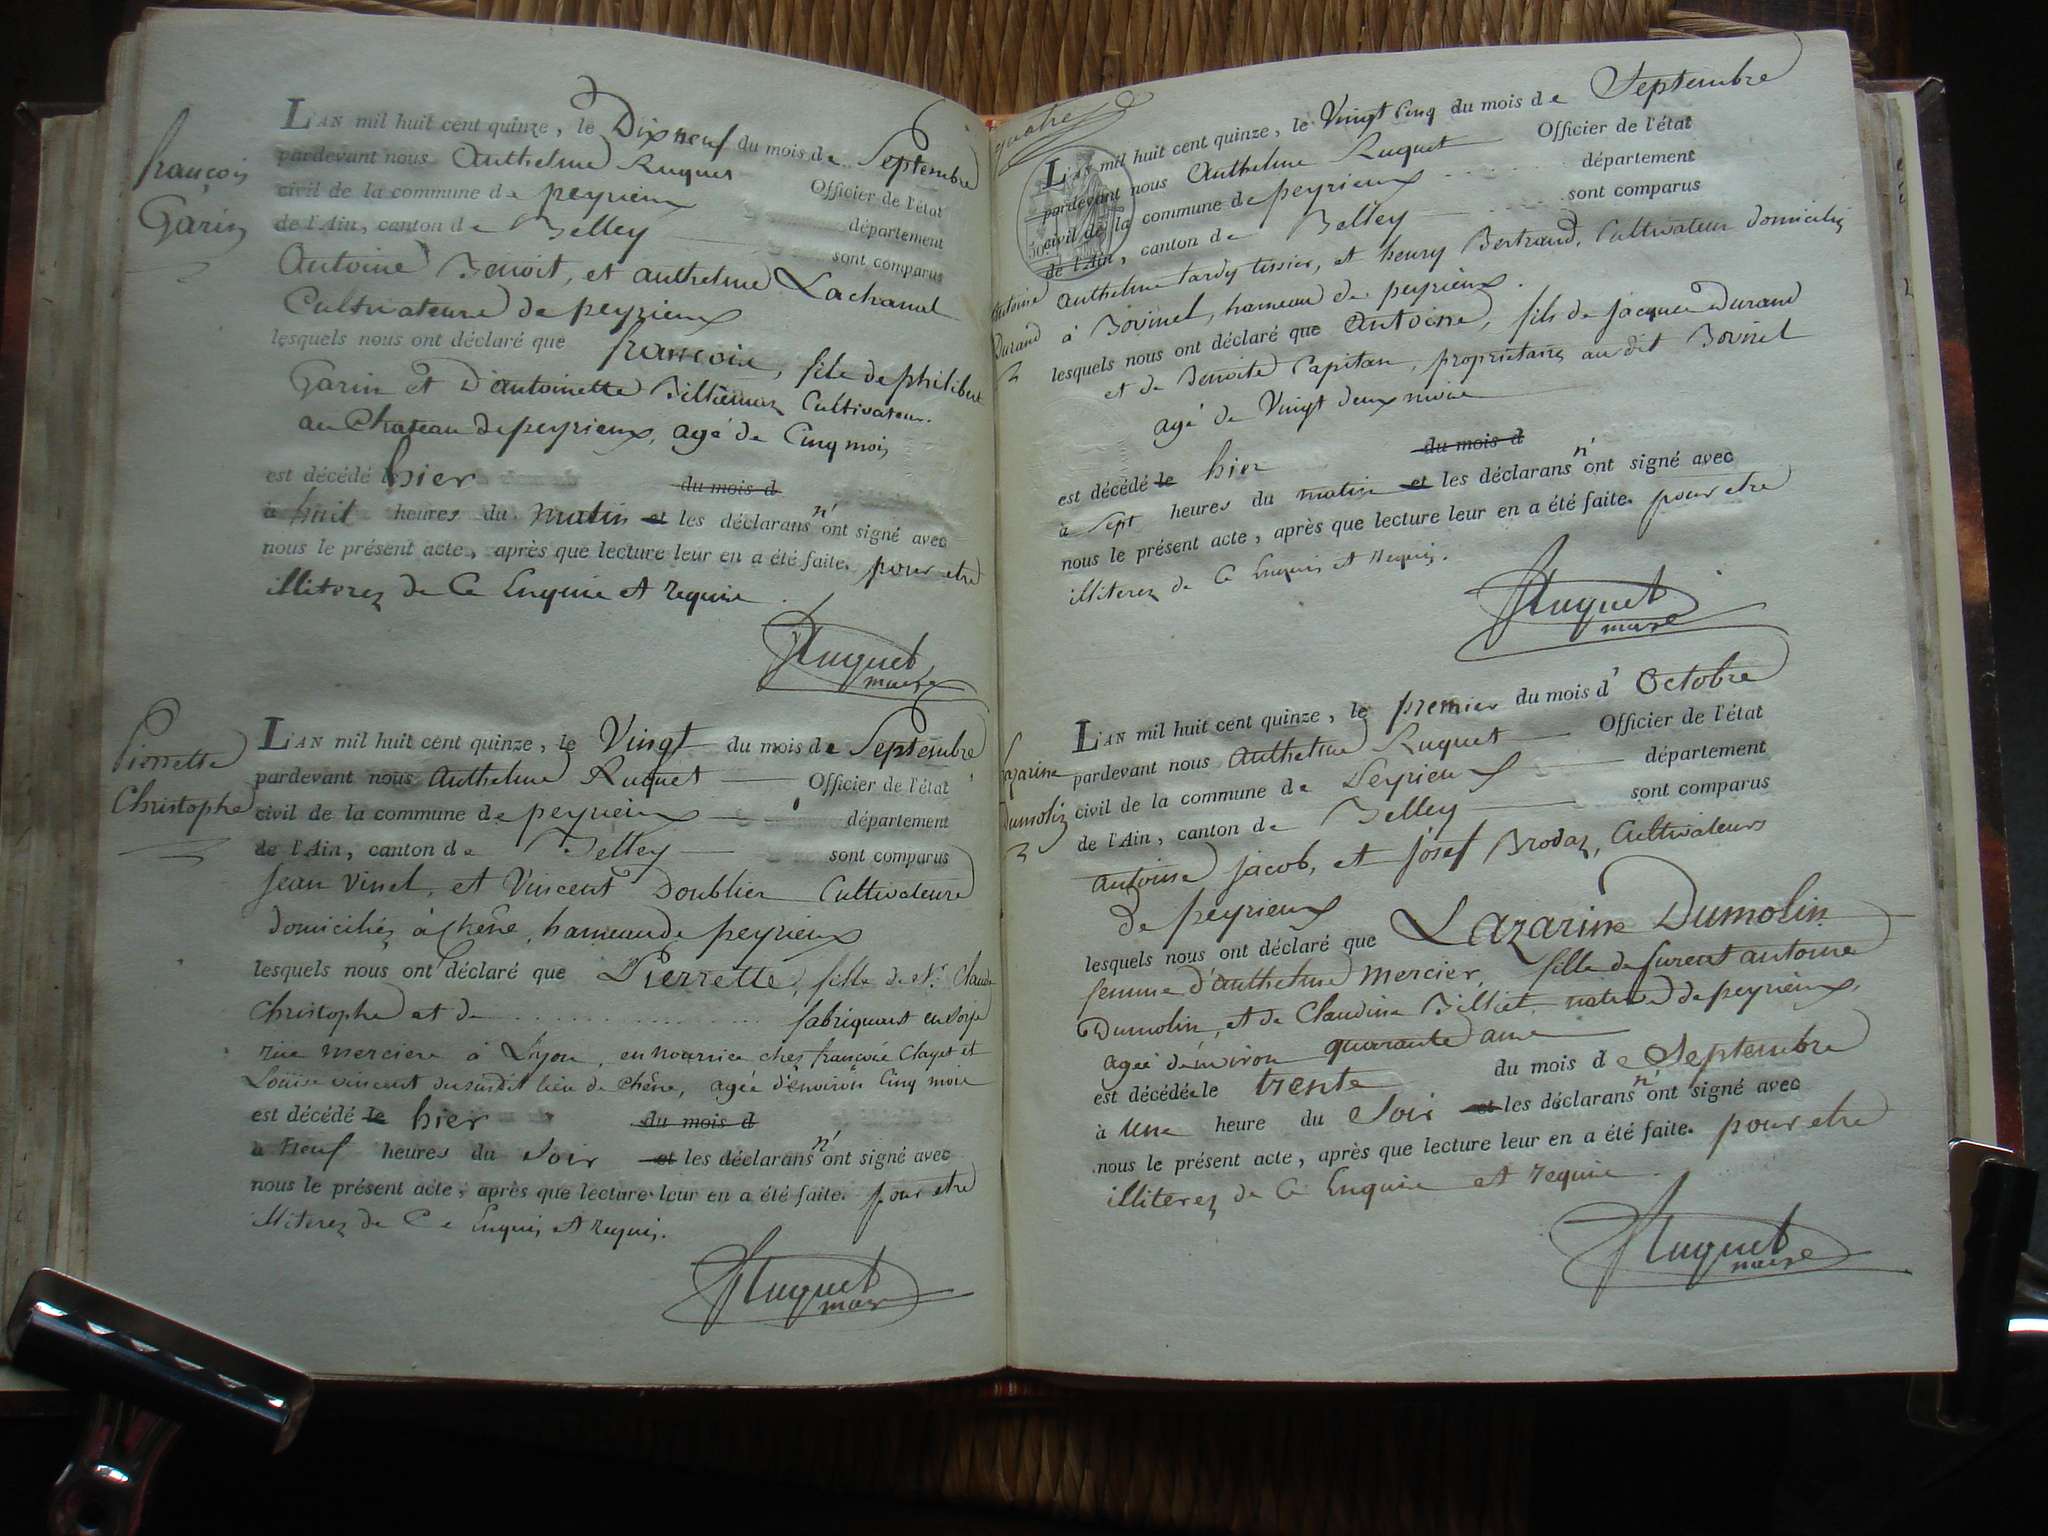 françois
Garin
L'AN mil huit cent quinze, le Dix neuf du mois de Septembre
pardevant nous Anthelme Ruquet Officier de l'état
civil de la commune de peyrieux département
de l'Ain, canton de Belley sont comparus
Antoine Benoit, et anthelme Lachanal
Cultivateurs de peyrieux
lesquels nous ont déclaré que françois, fils de philibert
Garin et D'antoinette Billiemaz Cultivateurs
au Chateau de peyrieux, agé de Cinq mois
est décédé hier du mois d
à huit heures du matin et les déclarans n'ont signé avec
nous le présent acte, après que lecture leur en a été faite. pour etre
illiterez de Ce Enquis et requis.
Ruquet
maire
Pierrette
Christophe
L'AN mil huit cent quinze, le Vingt du mois de Septembre
pardevant nous Anthelme Ruquet Officier de l'état
civil de la commune de peyrieux département
de l'Ain, canton de Belley sont comparus
Jean Vinet, et Vincent Doublier Cultivateurs
domiciliés à Chêne, hameau de peyrieux
lesquels nous ont déclaré que Pierrette, fille de Sr. Claude
Christophe et de .................... fabriquant en soye
rue merciere à Lyon, en nourrice chez françois Clayet et
Louise vincent du susdit lieu de Chêne, agée d'environ Cinq mois
est décédé le hier du mois d
à neuf heures du soir et les déclarans n'ont signé avec
nous le présent acte, après que lecture leur en a été faite. pour etre
illiterez de Ce Enquis et requis.
Ruquet
maire
quatre
Antoine
Durand
L'AN mil huit cent quinze, le Vingt Cinq du mois de Septembre
pardevant nous Anthelme Ruquet Officier de l'état
civil de la commune de peyrieux département
de l'Ain, canton de Belley sont comparus
anthelme tardy tissier, et henry Bertrand, Cultivateur domiciliés
à Bovinel, hameau de peyrieux.
lesquels nous ont déclaré que Antoine, fils de jacques Durand
et de Benoite Capitan, proprietaires au dit Bovinel
agé de Vingt deux mois
est décédé le hier du mois d
à sept heures du matin et les déclarans n'ont signé avec
nous le présent acte, après que lecture leur en a été faite. pour etre
illiterez de Ce Enquis et requis.
Ruquet
maire
Lazarine
Dumolin
L'AN mil huit cent quinze, le premier du mois d'Octobre
pardevant nous Anthelme Ruquet Officier de l'état
civil de la commune de Peyrieux département
de l'Ain, canton de Belley sont comparus
antoine jacob, et josef Brodaz, Cultivateurs
de peyrieux
lesquels nous ont déclaré que Lazarine Dumolin
femme d'anthelme mercier, fille de furent antoine
Dumolin, et de Claudine Billiet native de peyrieux,
agée d'environ quarante ans
est décédée le trente du mois de Septembre
à une heure du Soir et les déclarans n'ont signé avec
nous le présent acte, après que lecture leur en a été faite. pour etre
illiterez de Ce Enquis et requis
Ruquet
maire